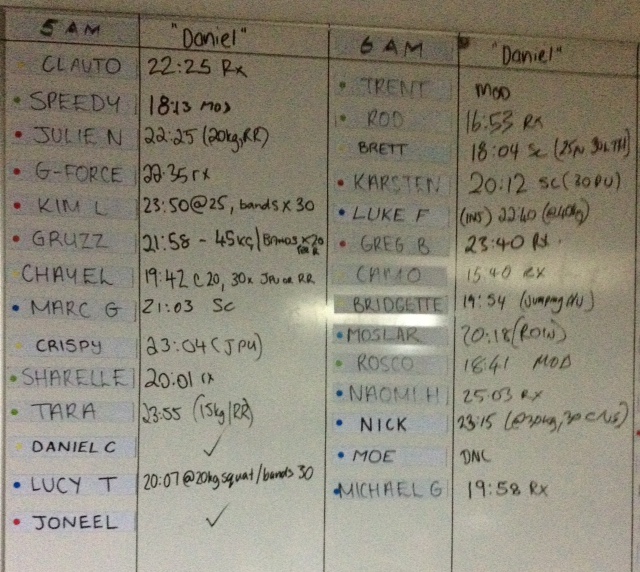 5 AM "Daniel"
CLAUTO 22:25 Rx
SPEEDY 18:13 MOD
JULIE N 22:25 (20kg, RR)
G-FORCE 22:35 rx
KIM L 23:50@25, bands x 30
GRUZZ 21:58 - 45kg/BANDS x 20
CHAYEL 19:42 C 20, 30x JPU or RR
MARC G 21:03 SC
CRISPY 23:04 (JPU)
SHARELLE 20:01 rx
TARA 23:55 (15kg/RR)
DANIEL C ✓
LUCY T 20:07 @20kg squat/bands 30
JONEEL ✓
6 AM "Daniel"
TRENT MOD
ROD 16:53 RX
BRETT 18:04 SC
KARSTEN 20:12 SC (30 PU)
LUKE F (INS) 22:40 (@40kg)
GREG B 23:40 Rx.
CAMO 15:40 RX
BRIDGETTE 19:54 (Jumping P/U)
MOSLAR 20:18 (ROW)
ROSCO 18:41 MOD
NAOMI H 25:03 RX
NICK 23:15 (@30kg, 30
MOE DNC
MICHAEL G 19:58 RX